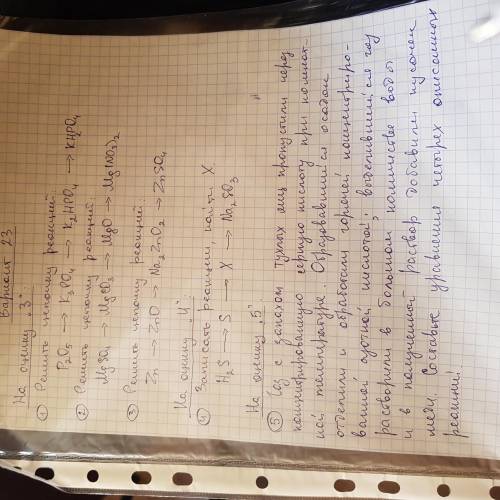 Вариант 23
На оценку "3"
① Решить цепочку реакций:
P₂O₅ → K₃PO₄ → K₂HPO₄ → KHPO₄
② Решить цепочку реакций:
MgSO₄ → MgCO₃ → MgO → Mg(NO₃)₂
③ Решить цепочку реакций:
Zn → ZnO → Na₂ZnO₂ → ZnSO₄
На оценку "4"
④ Записать реакции, найти X.
H₂S → S → X → Na₂SO₃
На оценку "5"
⑤ Газ с запахом тухлых яиц пропустили через
концентрированную серную кислоту при комнат-
ной температуре. Образовавшийся осадок
отделили и обработали горячей концентриро-
ванной азотной кислотой, выделившийся газ
растворили в большом количестве воды
и в полученный раствор добавили кусочек
меди. Составьте уравнения четырех описанных
реакций.